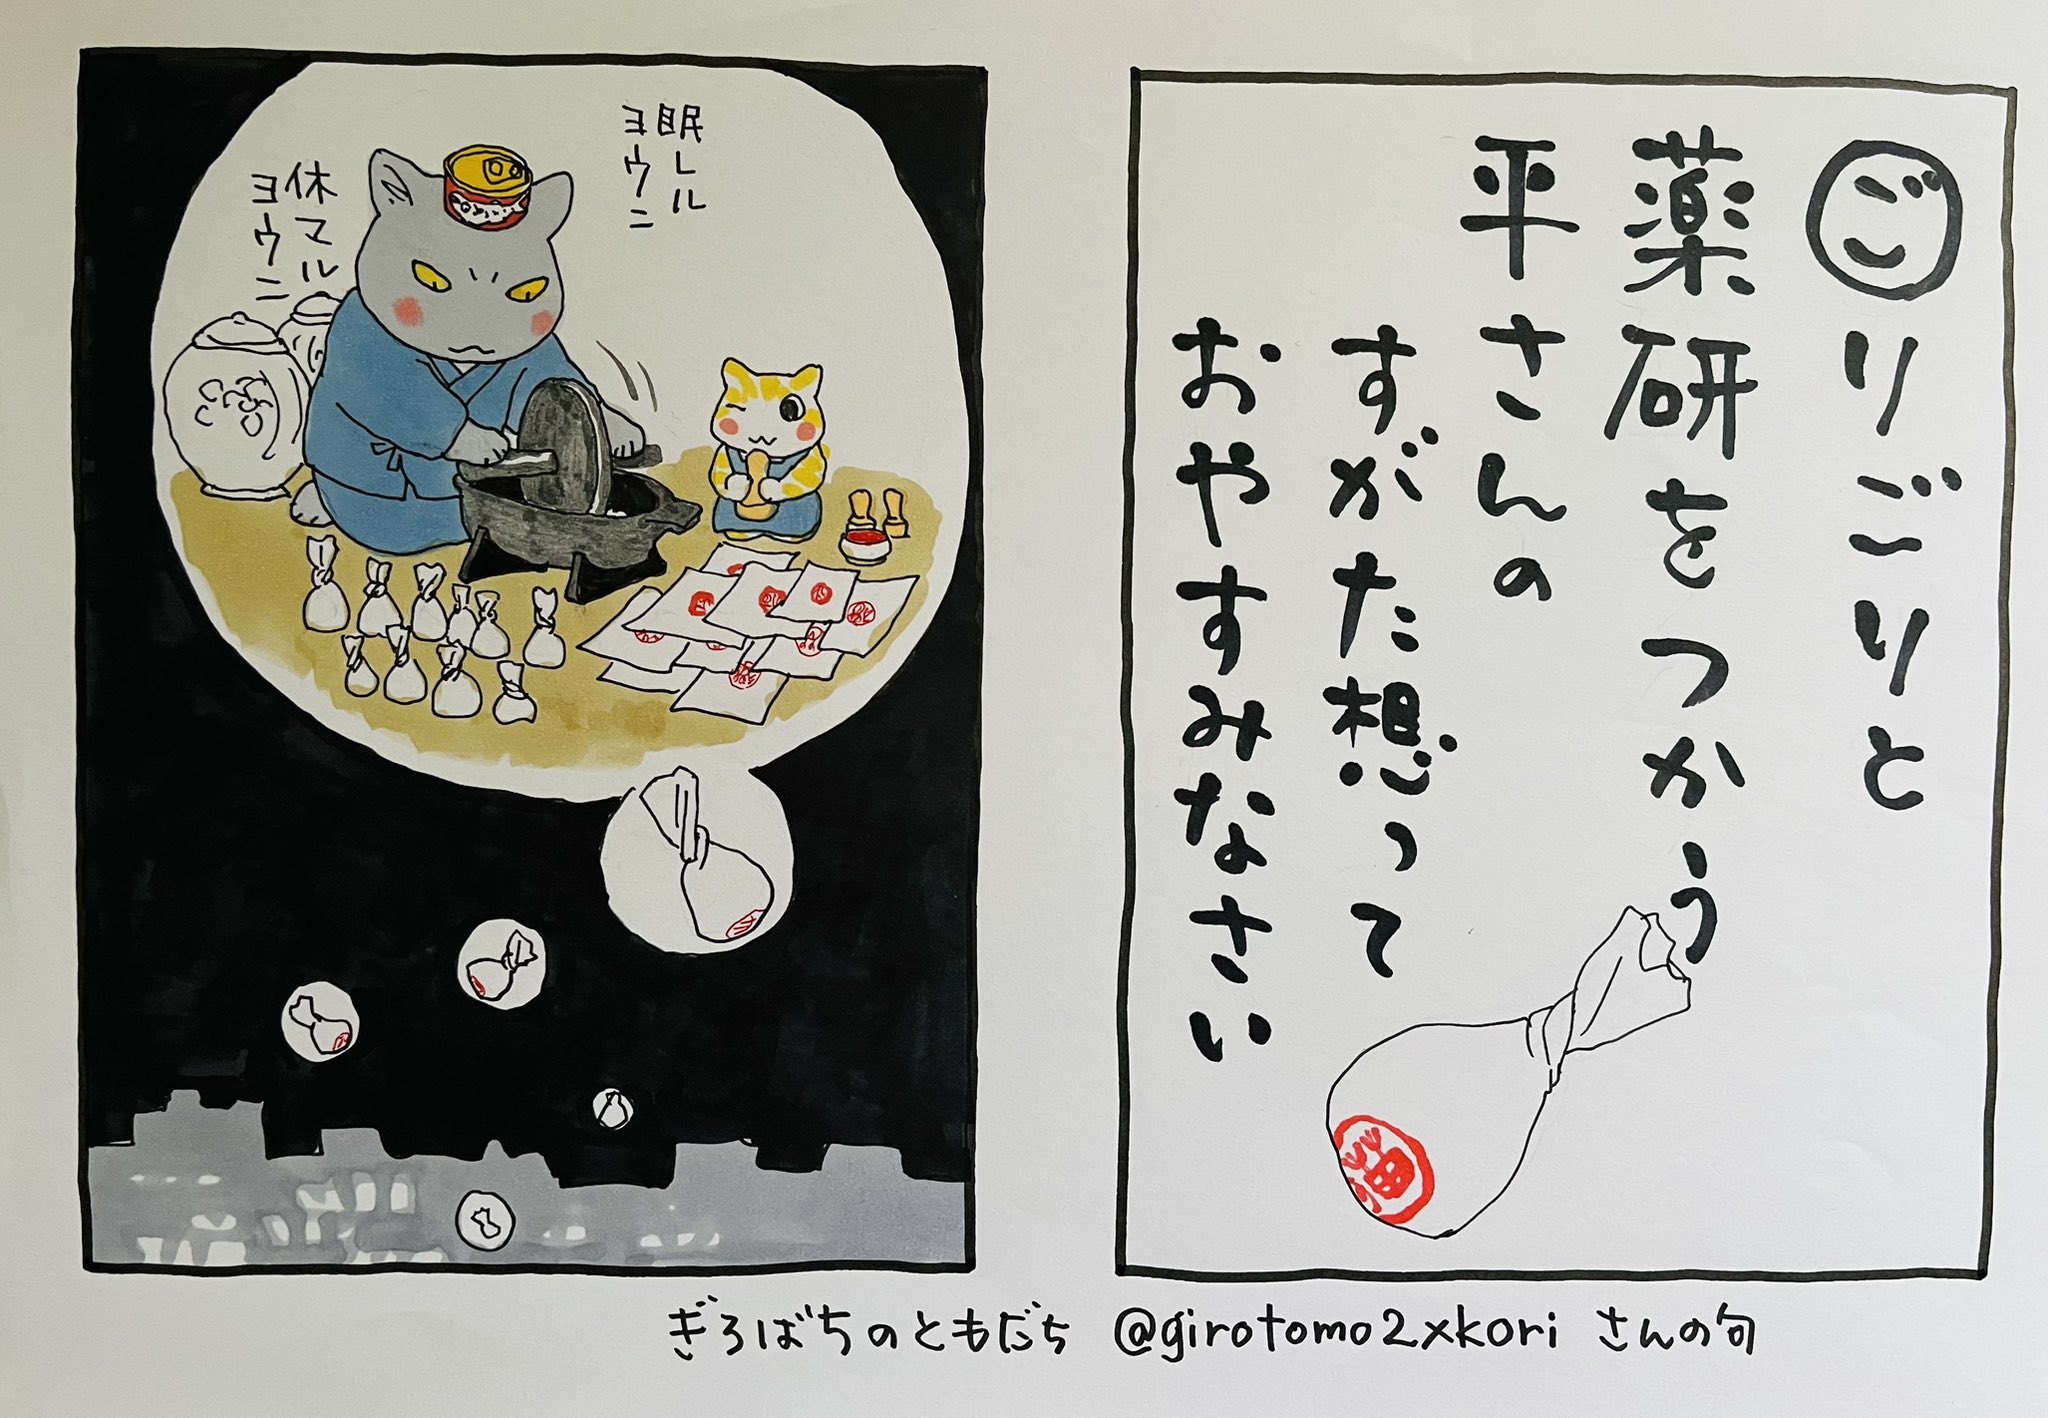 ごりごりと
薬研をつかう
平さんの
すがた想って
おやすみなさい
眠レル
ヨウニ
休マル
ヨウニ
ぎろばちのともだち @girotomo2xkori さんの句